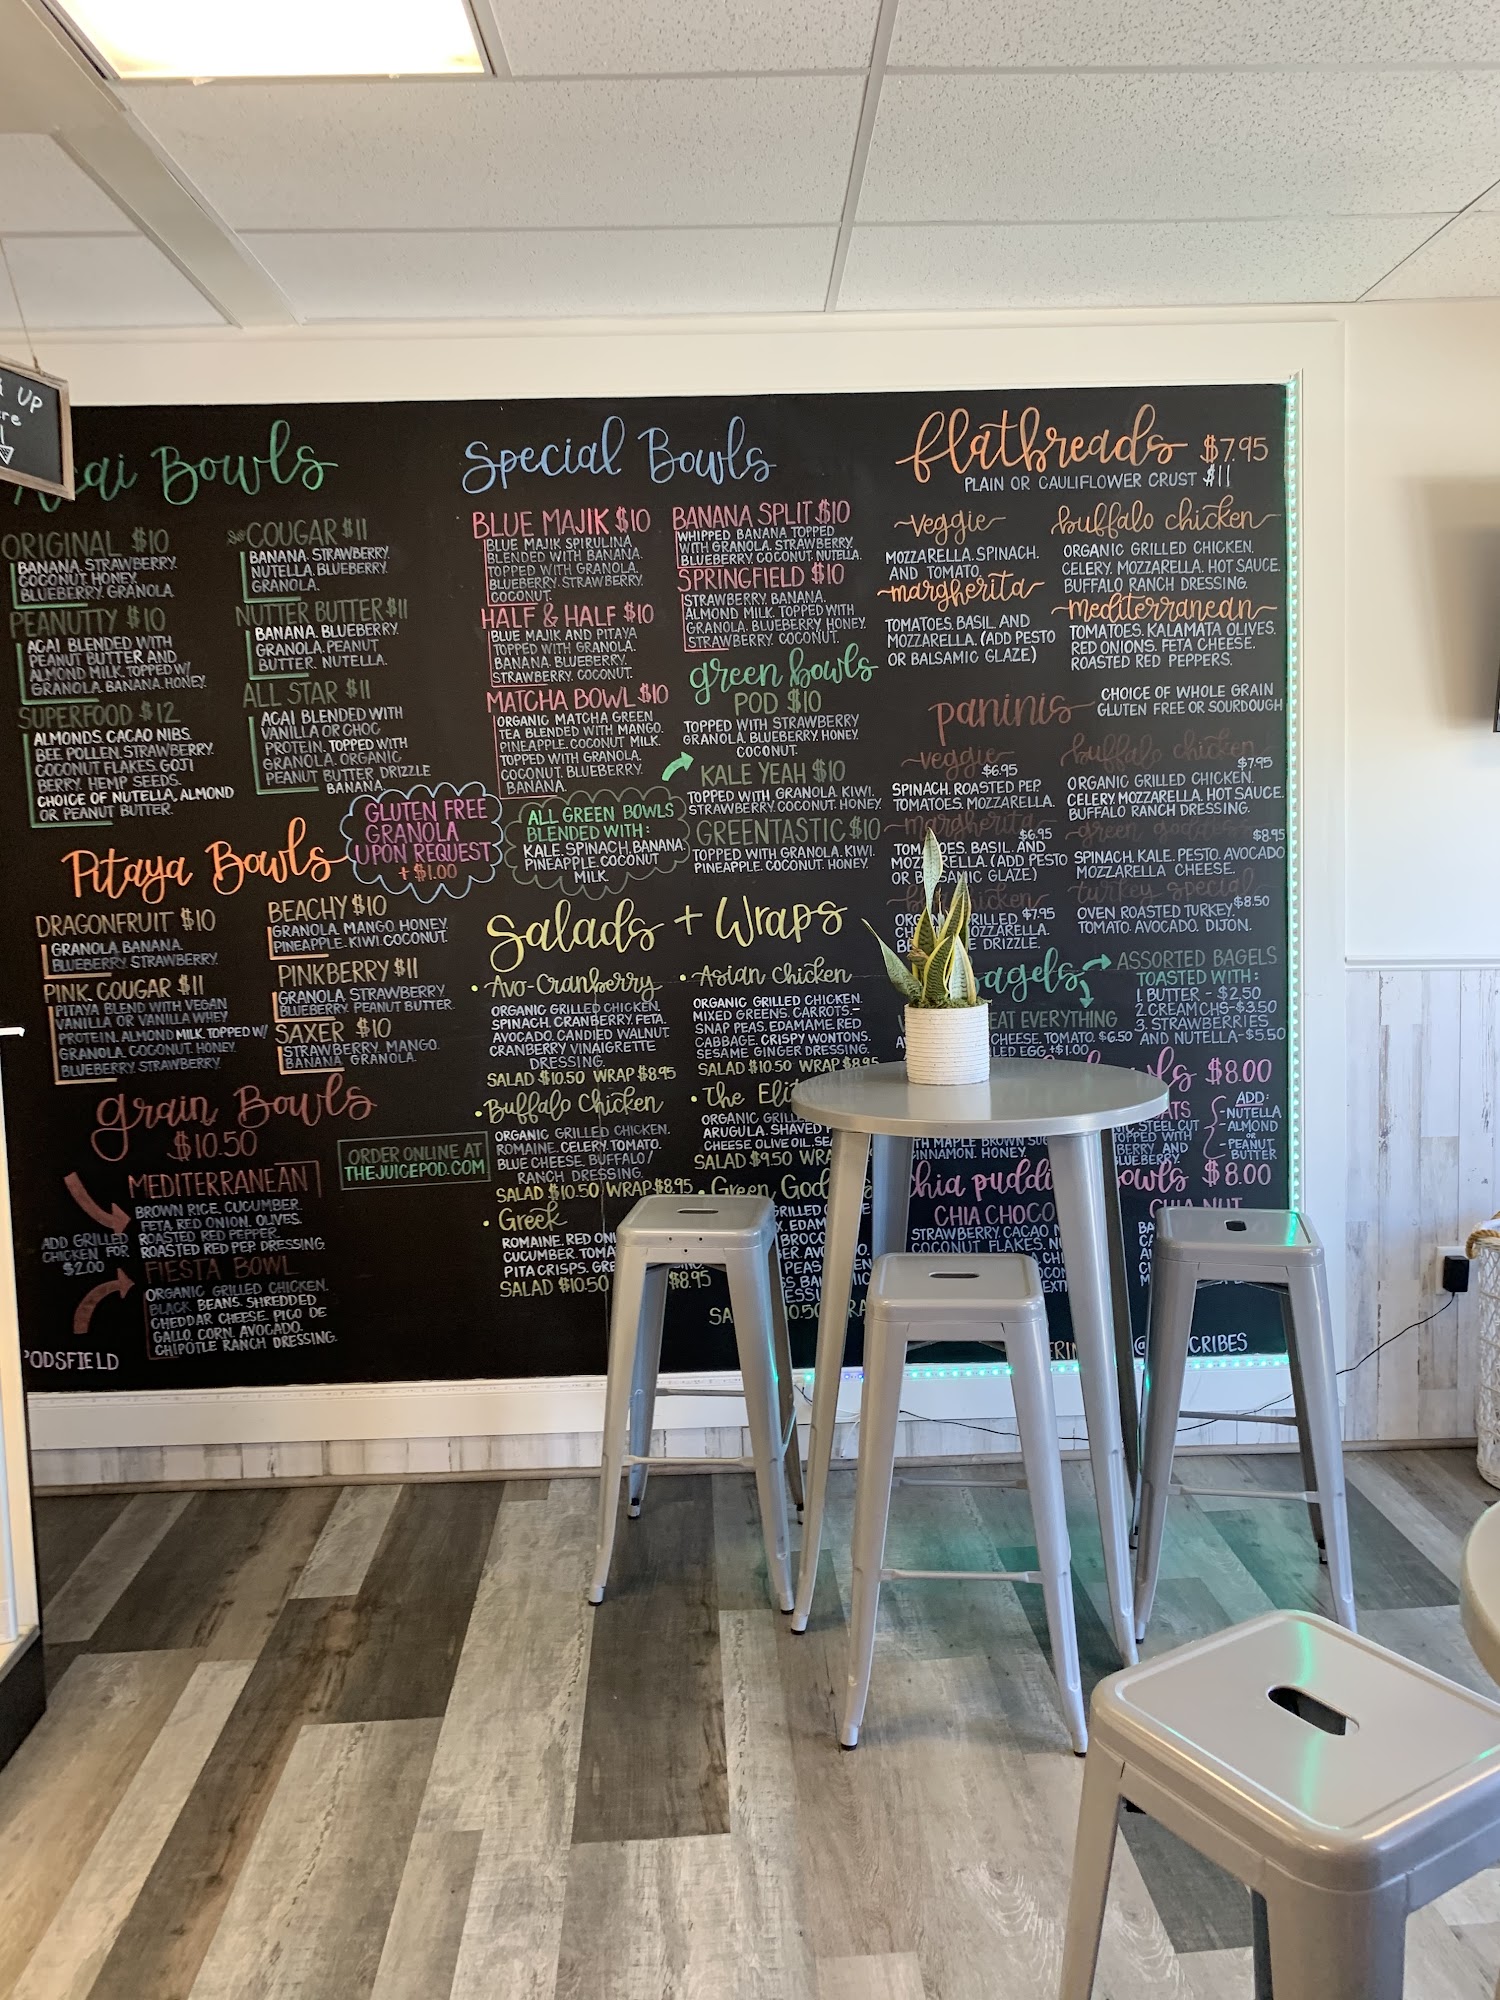 UP
Acai Bowls
ORIGINAL $10
BANANA. STRAWBERRY.
COCONUT. HONEY.
BLUEBERRY. GRANOLA.
PEANUTTY $10
ACAI BLENDED WITH
PEANUT BUTTER AND
ALMOND MILK. TOPPED W/
GRANOLA. BANANA. HONEY.
SUPERFOOD $12
ALMONDS. CACAO NIBS.
BEE POLLEN. STRAWBERRY.
COCONUT FLAKES. GOJI
BERRY. HEMP SEEDS.
CHOICE OF NUTELLA, ALMOND
OR PEANUT BUTTER.
COUGAR $11
BANANA. STRAWBERRY.
NUTELLA. BLUEBERRY.
GRANOLA.
NUTTER BUTTER $11
BANANA. BLUEBERRY.
GRANOLA. PEANUT
BUTTER. NUTELLA.
ALL STAR $11
ACAI BLENDED WITH
VANILLA OR CHOC
PROTEIN. TOPPED WITH
GRANOLA. ORGANIC
PEANUT BUTTER DRIZZLE
BANANA.
GLUTEN FREE
GRANOLA
UPON REQUEST
+ $1.00
Pitaya Bowls
DRAGONFRUIT $10
GRANOLA. BANANA.
BLUEBERRY. STRAWBERRY.
PINK COUGAR $11
PITAYA BLEND WITH VEGAN
VANILLA OR VANILLA WHEY
PROTEIN. ALMOND MILK. TOPPED W/
GRANOLA. COCONUT. HONEY.
BLUEBERRY. STRAWBERRY.
BEACHY $10
GRANOLA. MANGO. HONEY.
PINEAPPLE. KIWI. COCONUT.
PINKBERRY $11
GRANOLA. STRAWBERRY.
BLUEBERRY. PEANUT BUTTER.
SAXER $10
STRAWBERRY. MANGO.
BANANA. GRANOLA.
Grain Bowls
$10.50
MEDITERRANEAN
BROWN RICE. CUCUMBER.
FETA. RED ONION. OLIVES.
ROASTED RED PEPPER.
ROASTED RED PEP. DRESSING.
ADD GRILLED
CHICKEN FOR
$2.00
FIESTA BOWL
ORGANIC GRILLED CHICKEN.
BLACK BEANS. SHREDDED
CHEDDAR CHEESE. PICO DE
GALLO. CORN. AVOCADO.
CHIPOTLE RANCH DRESSING.
PODSFIELD
ORDER ONLINE AT
THEJUICEPOD.COM
Special Bowls
BLUE MAJIK $10
BLUE MAJIK SPIRULINA
BLENDED WITH BANANA.
TOPPED WITH GRANOLA.
BLUEBERRY. STRAWBERRY.
COCONUT.
HALF & HALF $10
BLUE MAJIK AND PITAYA
TOPPED WITH GRANOLA.
BANANA. BLUEBERRY.
STRAWBERRY. COCONUT.
MATCHA BOWL $10
ORGANIC MATCHA GREEN
TEA BLENDED WITH MANGO.
PINEAPPLE. COCONUT MILK.
TOPPED WITH GRANOLA.
COCONUT. BLUEBERRY.
BANANA.
BANANA SPLIT $10
WHIPPED BANANA TOPPED
WITH GRANOLA. STRAWBERRY.
BLUEBERRY. COCONUT. NUTELLA.
SPRINGFIELD $10
STRAWBERRY. BANANA.
ALMOND MILK. TOPPED WITH
GRANOLA. BLUEBERRY. HONEY.
STRAWBERRY. COCONUT.
green bowls
POD $10
TOPPED WITH STRAWBERRY
GRANOLA. BLUEBERRY. HONEY.
COCONUT.
KALE YEAH $10
TOPPED WITH GRANOLA. KIWI.
STRAWBERRY. COCONUT. HONEY.
GREENTASTIC $10
TOPPED WITH GRANOLA. KIWI.
PINEAPPLE. COCONUT. HONEY.
ALL GREEN BOWLS
BLENDED WITH:
KALE. SPINACH. BANANA.
PINEAPPLE. COCONUT
MILK.
Salads + Wraps
• Avo-Cranberry
ORGANIC GRILLED CHICKEN.
SPINACH. CRANBERRY. FETA.
AVOCADO. CANDIED WALNUT.
CRANBERRY VINAIGRETTE
DRESSING.
SALAD $10.50 WRAP $8.95
• Buffalo Chicken
ORGANIC GRILLED CHICKEN.
ROMAINE. CELERY. TOMATO.
BLUE CHEESE. BUFFALO/
RANCH DRESSING.
SALAD $10.50 WRAP $8.95
• Greek
ROMAINE. RED ONI
CUCUMBER. TOMA
PITA CRISPS. GRE
SALAD $10.50 $8.95
• Asian Chicken
ORGANIC GRILLED CHICKEN.
MIXED GREENS. CARROTS.
SNAP PEAS. EDAMAME. RED
CABBAGE. CRISPY WONTONS.
SESAME GINGER DRESSING.
SALAD $10.50 WRAP $8.95
• The Elit
ORGANIC GRILL
ARUGULA. SHAVED P
CHEESE. OLIVE OIL. SEA
SALAD $9.50 WRA
• Green God
flatbreads $7.95
PLAIN OR CAULIFLOWER CRUST $11
veggie
MOZZARELLA. SPINACH.
AND TOMATO.
margherita
TOMATOES. BASIL. AND
MOZZARELLA. (ADD PESTO
OR BALSAMIC GLAZE)
buffalo chicken
ORGANIC GRILLED CHICKEN.
CELERY. MOZZARELLA. HOT SAUCE.
BUFFALO RANCH DRESSING.
mediterranean
TOMATOES. KALAMATA OLIVES.
RED ONIONS. FETA CHEESE.
ROASTED RED PEPPERS.
paninis
CHOICE OF WHOLE GRAIN
GLUTEN FREE OR SOURDOUGH
veggie
$6.95
SPINACH. ROASTED PEP.
TOMATOES. MOZZARELLA.
margherita
$6.95
TOMATOES. BASIL. AND
MOZZARELLA. (ADD PESTO
OR BALSAMIC GLAZE)
chicken
$7.95
DRIZZLE.
buffalo chicken
$7.95
ORGANIC GRILLED CHICKEN.
CELERY. MOZZARELLA. HOT SAUCE.
BUFFALO RANCH DRESSING.
green goddess
$8.95
SPINACH. KALE. PESTO. AVOCADO
MOZZARELLA CHEESE.
turkey special
$8.50
OVEN ROASTED TURKEY.
TOMATO. AVOCADO. DIJON.
bagels
ASSORTED BAGELS
TOASTED WITH:
1. BUTTER - $2.50
2. CREAM CHS - $3.50
3. STRAWBERRIES
AND NUTELLA - $5.50
EAT EVERYTHING
CHEESE. TOMATO. $6.50
EGG +$1.00
$8.00
ADD:
-NUTELLA
-ALMOND
OR
-PEANUT
BUTTER
STEEL CUT
TOPPED WITH
WITH MAPLE BROWN SUG
CINNAMON. HONEY.
BLUEBERRY.
chia pudding bowls $8.00
CHIA CHOCO
STRAWBERRY. CACAO N
COCONUT FLAKES. NU
CHIA NUT
CRIBES